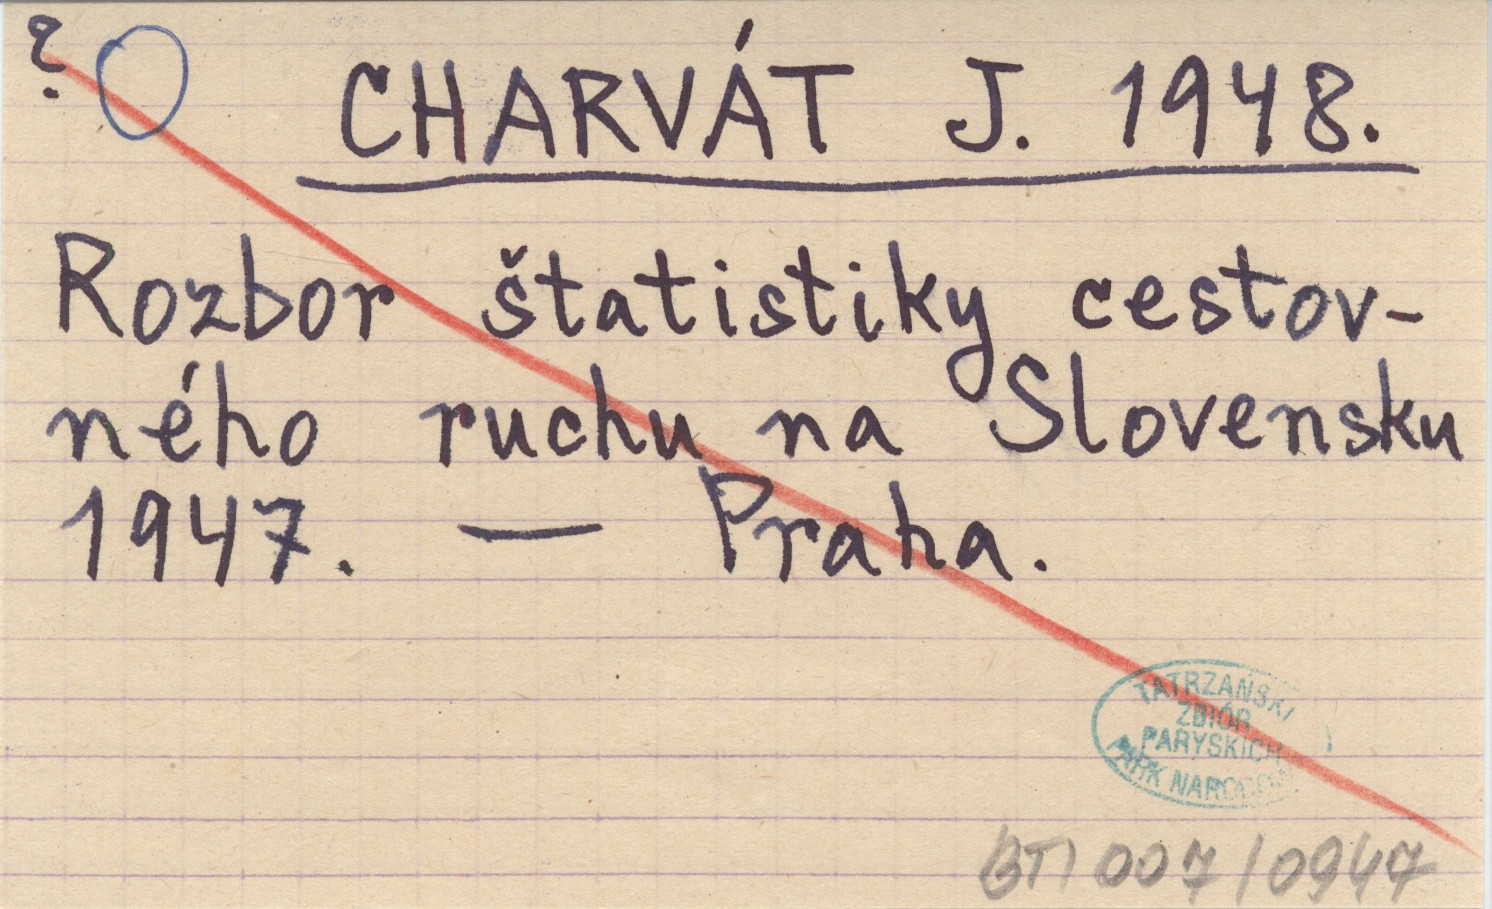 ?
CHARVÁT J. 1948.
Rozbor štatistiky cestov-
ného ruchu na Slovensku
1947. — Praha.
TATRZAŃSKI
ZBIÓR
PARYSKICH
PARK NARODOWY
BTI 007/0947